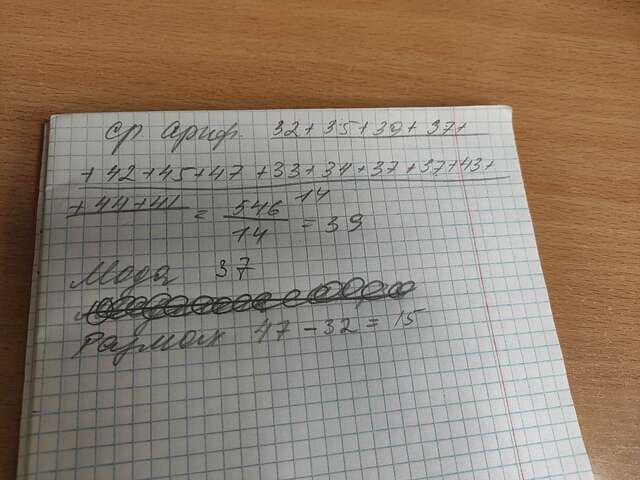 ср. ариф. 32+35+39+37+
+42+45+47+33+34+37+37+43+
+44+41
14
= 546/14 = 39
Мода 37
Размах 47-32=15